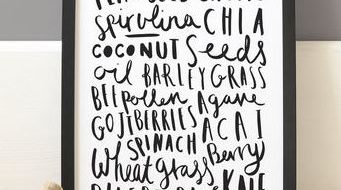 spirulina CHIA
COCONUT Seeds
oil BARLEY GRASS
BEE pollen Agave
GOJI BERRIES ACAI
SPINACH
Wheat grass Berry
KALE